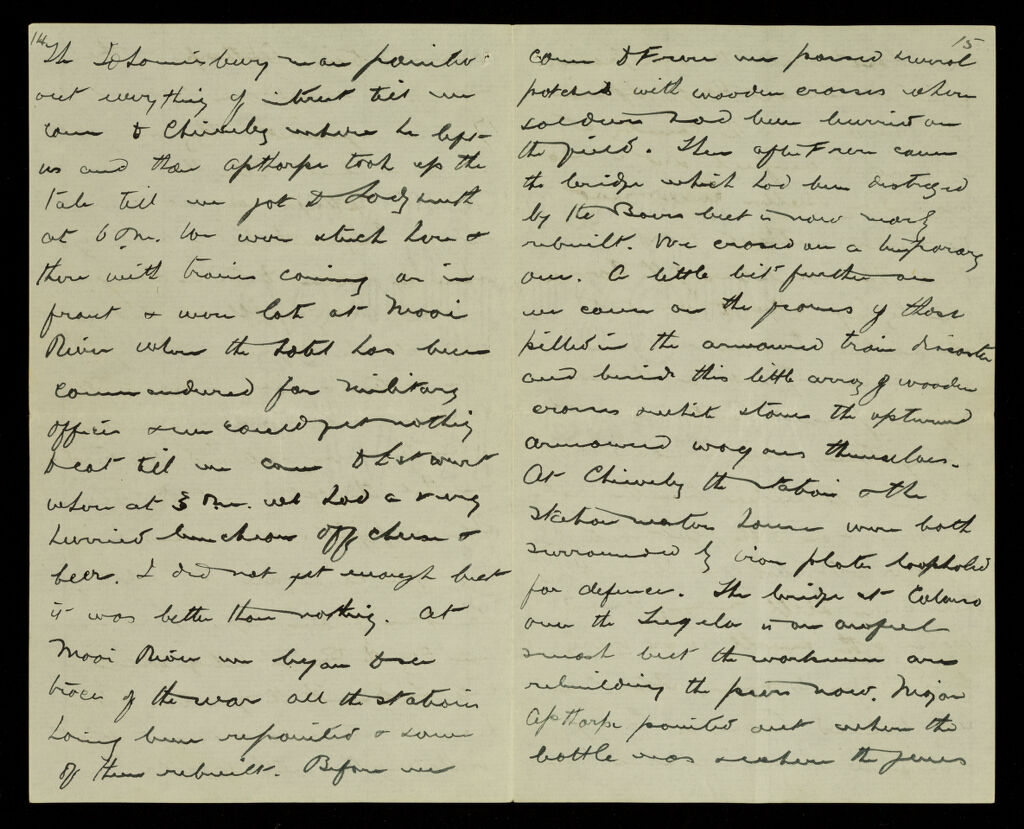 14
The Johannisburg man pointed
out everything of interest till we
came to Chieveley where he left
us and then Apthorpe took up the
tale till we got to Ladysmith
at 6 p.m. We were stuck here &
there with trains coming on in
front & were late at Mooi
River where the hotel has been
commandeered for military
officers & we could get nothing
to eat till we came to Estcourt
where at 3 p.m. we had a very
hurried luncheon off cheese &
beer. I did not get enough but
it was better than nothing. At
Mooi River we began to see
traces of the war all the stations
having been repainted & some
of them rebuilt. Before we
15
came to Frere we passed several
patches with wooden crosses where
soldiers had been buried on
the field. Then after Frere came
the bridge which had been destroyed
by the Boers but is now nearly
rebuilt. We crossed on a temporary
one. A little bit further on
we came on the graves of those
killed in the armoured train disaster
and beside this little array of wooden
crosses & white stones the upturned
armoured waggons themselves.
At Chieveley the station & the
station masters house were both
surrounded by iron plates loopholed
for defence. The bridge at Colenso
over the Tugela is an awful
smash but the workmen are
rebuilding the piers now. Major
Apthorpe pointed out where the
battle was & where the guns